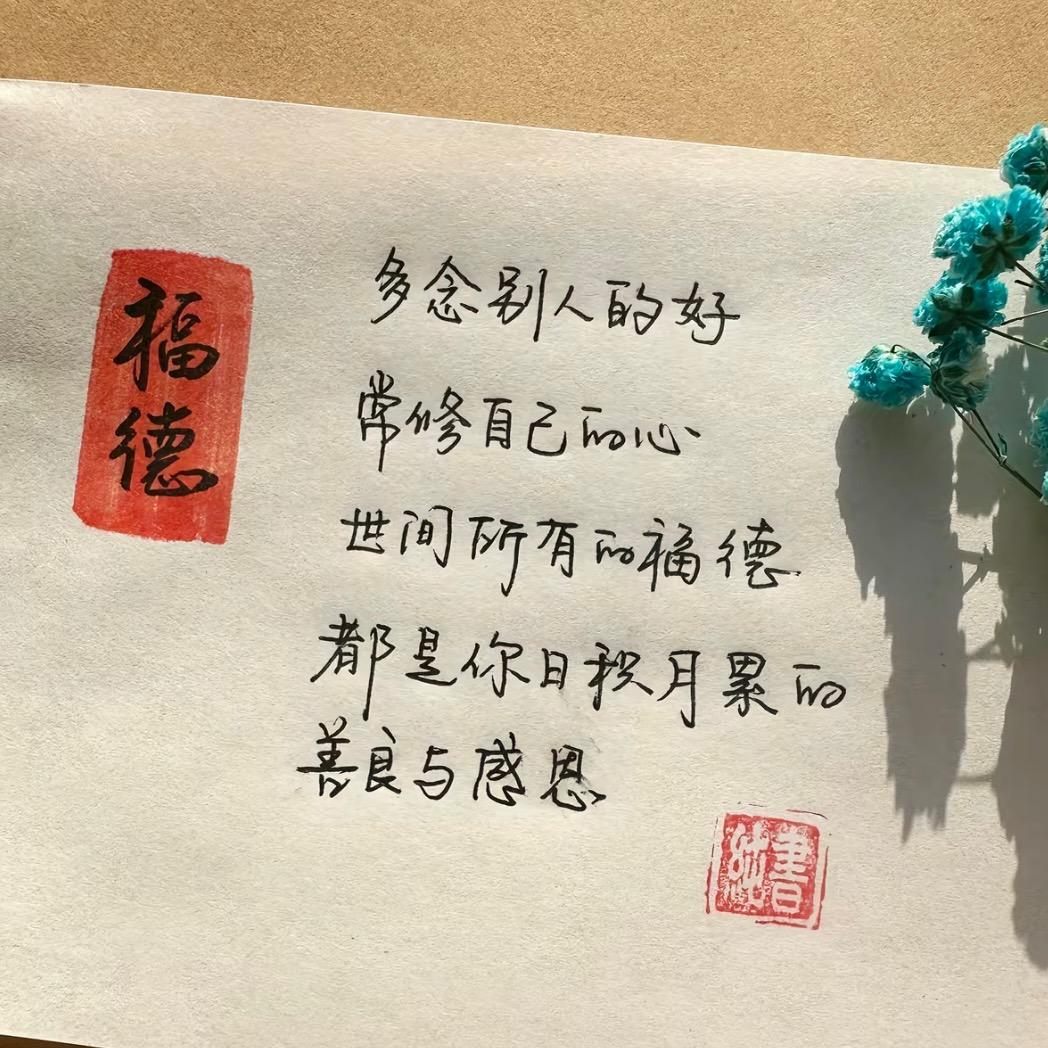 福德
多念别人的好
常修自己的心
世间所有的福德
都是你日积月累的
善良与感恩